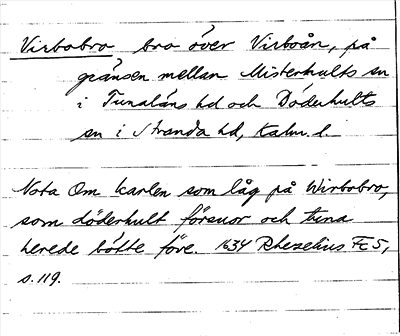 Virbobro bro över Virboån, på
gränsen mellan Misterhults sn
i Tunaläns hd och Döderhults
sn i Stranda hd, Kalm. l.
Nota Om karlen som låg på Wirbobro,
som döderhult försuor och tuna
herede bötte före. 1634 Rhezelius Fc5,
s. 119.